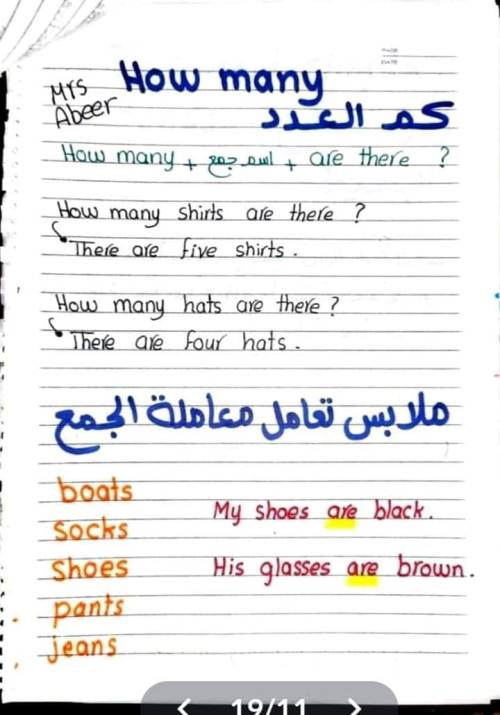 Mrs
Abeer
How many
كم العدد
How many + اسم جمع + are there ?
How many shirts are there ?
There are five shirts .
How many hats are there ?
There are four hats .
ملابس تعامل معاملة الجمع
boats
socks
shoes
pants
jeans
My shoes are black .
His glasses are brown .
19/11